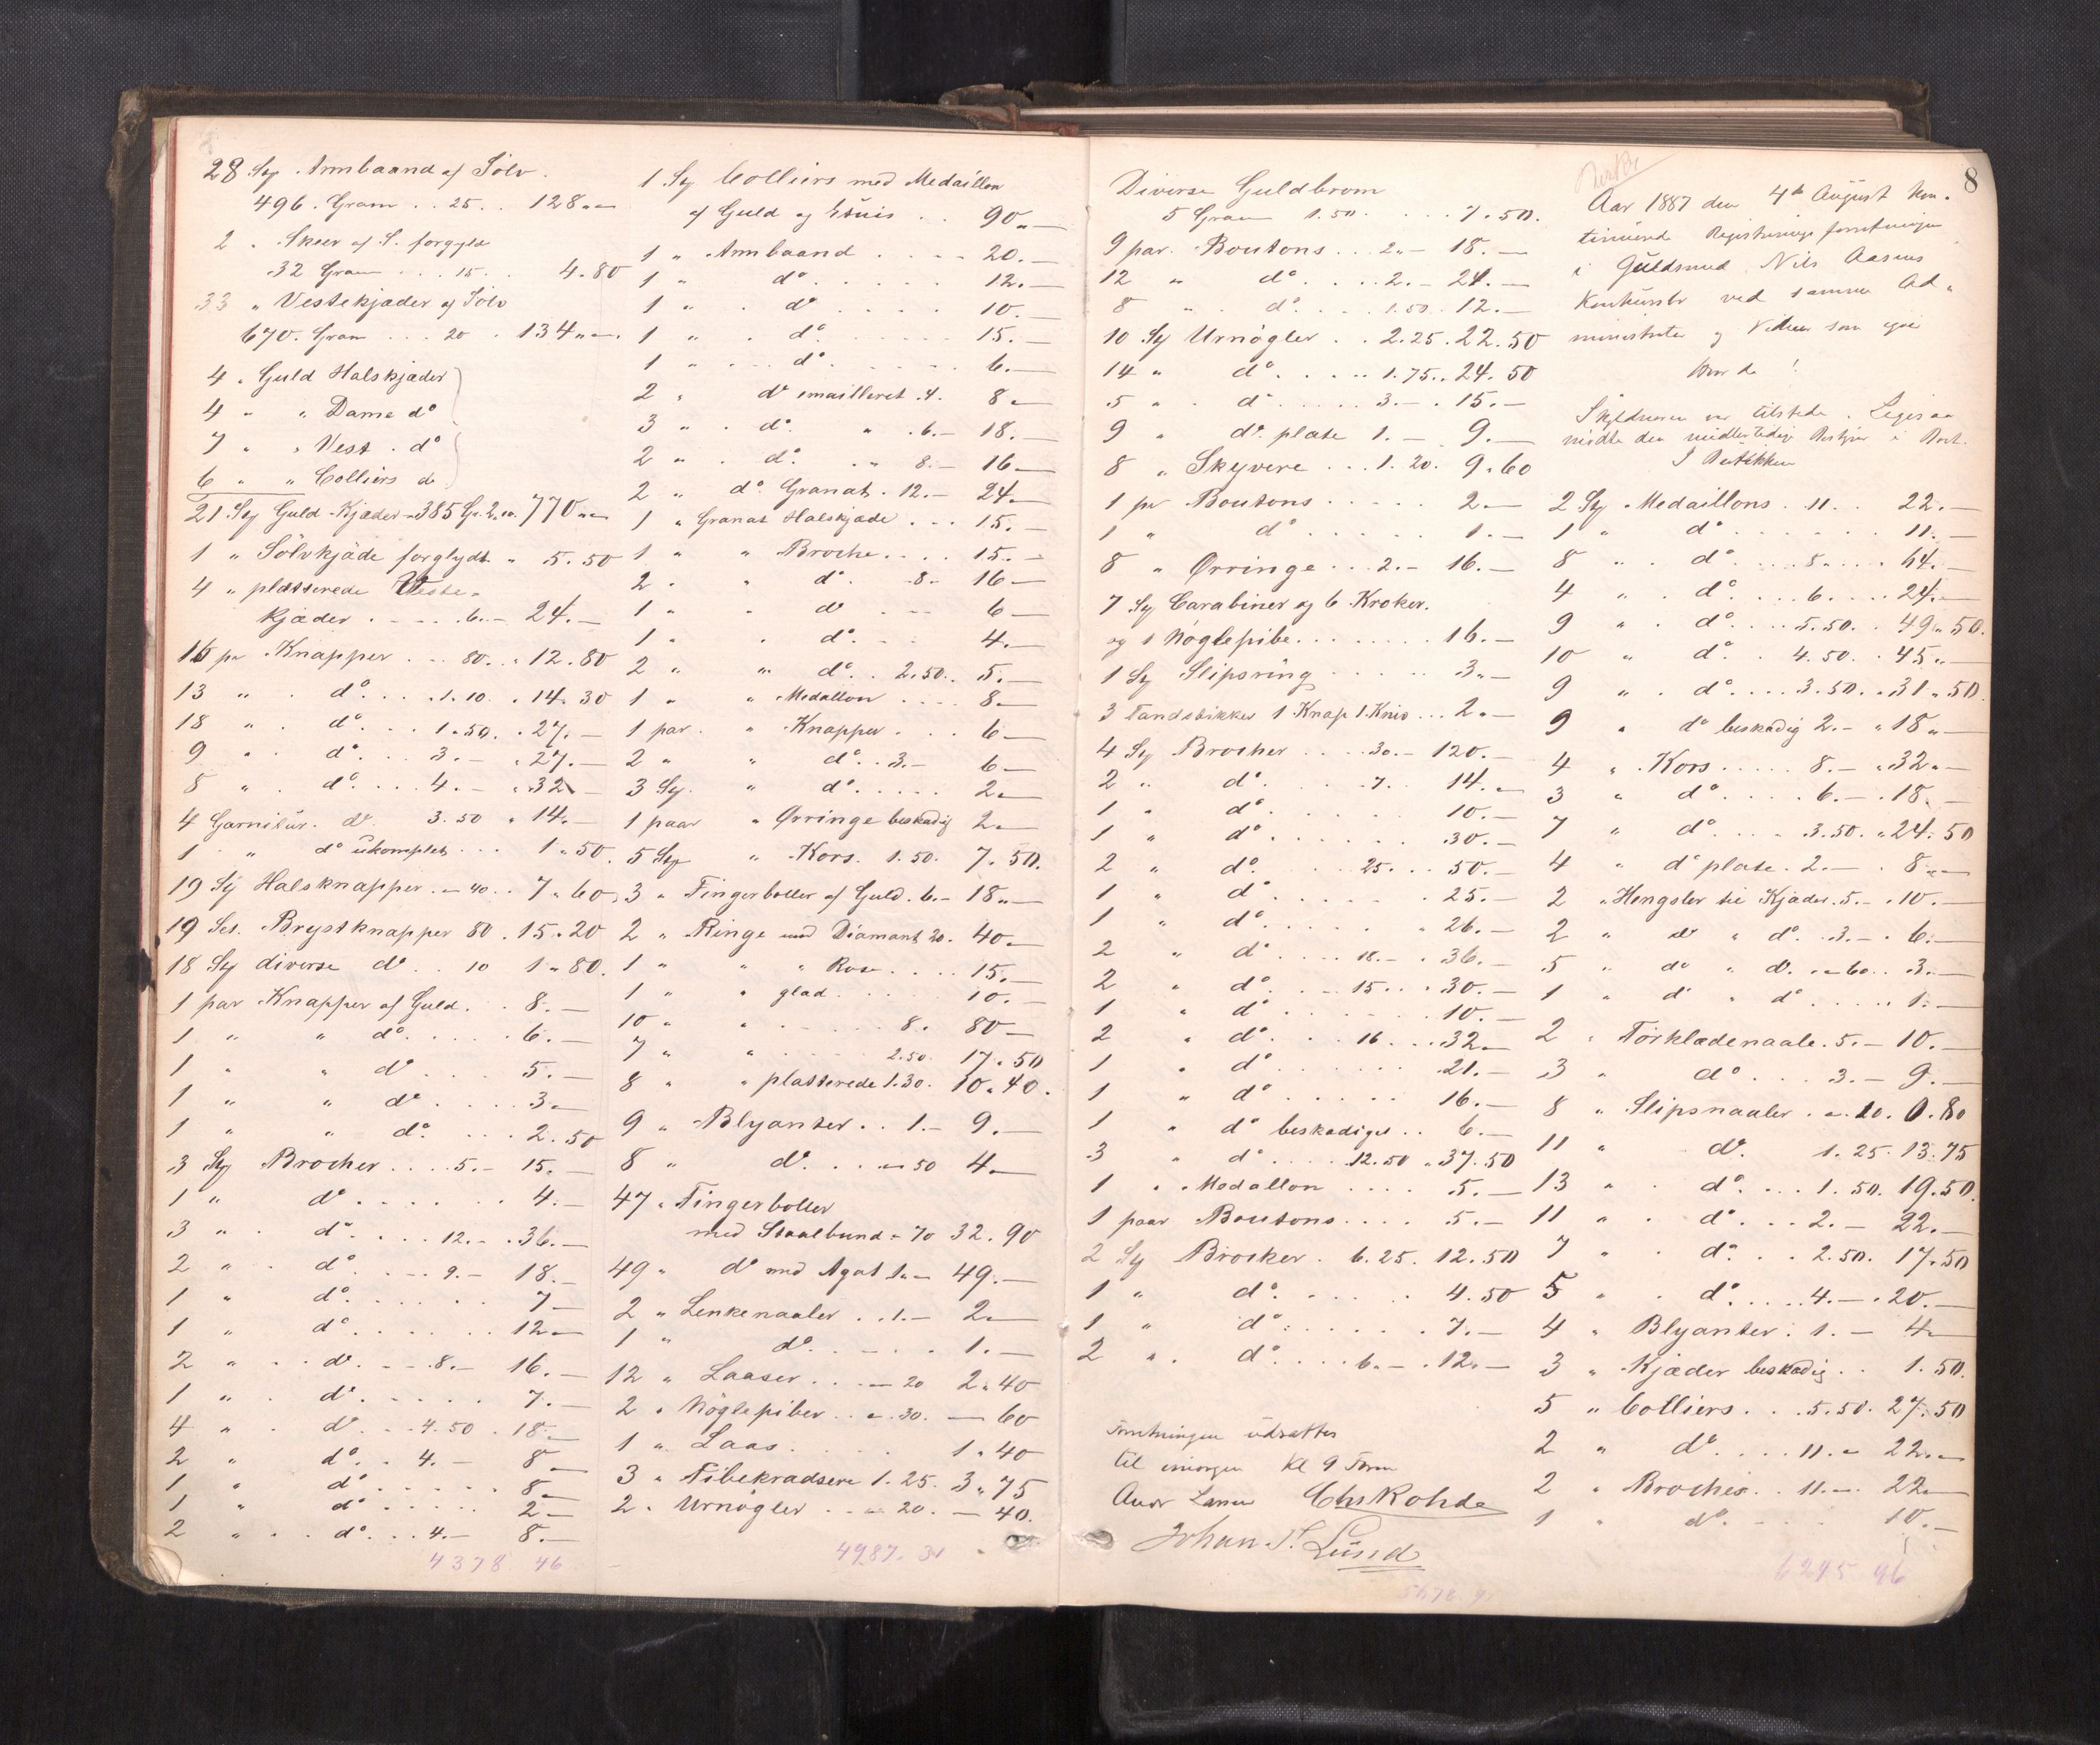 28 Stj Armbaand af Sölv.
496. Gram . . 25 . . 128 " —
2 " Skeer af S. forgyld
32 Gram . . . 15 . . 4.80
33 " Vestekjæder af Sölv
670. Gram . . . 20 . 134 " —
4 " Guld Halskjæder
4 " " Dame do
7 " " Vest . do
6 " " Colliers do
21 Stj Guld-Kjæder - 385 Gr. 2." 770 " —
1 " Sölvkjæde forglydt " 5.50
4 " platterede Veste-
kjæder . . . . 6. — 24. —
16 pr Knapper . . 80 . . 12.80
13 " . do . . . 1.10 . 14.30
18 " . do . . . 1.50 . . 27. —
9 " . do . . . 3. — . 27. —
8 " . do . . . 4. — . 32 —
4 Garnitür . do 3.50 . 14. —
1 " do ukomplet . . . 1.50
19 Stj Halsknapper . " 40 . . 7.60
19 Set. Brystknapper 80 . 15.20
18 Stj diverse do . . 10 1.80
1 par Knapper af Guld . . 8. —
1 " " do . . . . 6. —
1 " " do . . . 5. —
1 " " do . . . . 3 —
1 " " do . . . 2.50
3 Stj Brocher . . . . 5. — 15. —
1 " do . . . . . . 4. —
3 " . do . . . . 12. — . 36. —
2 " . do . . . 9. — 18. —
1 " do . . . . . . 7 —
1 " do . . . . . . 12 —
2 " . . do . . . 8. — 16. —
1 " . do . . . . . 7. —
4 " . do . . . 4.50 . 18. —
2 " do . . 4. — 8 —
1 " do . . . . . 8 —
1 " do . . . . . 2 —
2 " . . do . . . 4. — 8. —
4378.46
1 Stj Colliers med Medaillon
af Guld og Etuis . . 90 " —
1 " Armbaand . . . . 20. —
1 " do . . . . . 12. —
1 " . do . . . . 10. —
1 " . do . . . . . 15. —
1 " . . . do . . . . . 6. —
2 " do emailleret . 4. 8 —
3 " . do " . 6. — 18. —
2 " . do . " 8. — 16 —
2 " do Granat . 12. — 24 —
1 " Granat Halskjæde . . . 15. —
1 " " Broche . . . . 15. —
2 " " do . 8 — 16 —
1 " " do . . . 6 —
1 " . do . . . 4 —
2 " " do . . 2.50 . . 5. —
1 " " Medallon . . . . 8 —
1 par . " Knapper . . . 6 —
2 " " do . . 3. — 6 —
3 Stj . " do . . . . . 2 —
1 paar " Ørringe beskadig 2 —
5 Stj " Kors . 1.50 . 7.50.
3 " Fingerboller af Guld . 6. — 18 " —
2 " Ringe med Diamant 20 . 40 —
1 " " " Rose . . . . 15. —
1 " " glad . . . 10. —
10 " " . . . . . 8. 80 —
7 " " . . . . . 2.50 . 17.50
8 " " platterede 1.30 . 10.40.
9 " Blyanter . . 1. — 9. —
8 " do . . . — 50 4 —
47 " Fingerboller
med Staalbund " 70 32.90
49 " do med Agat 1. — 49. —
2 " Lenkenaaler . . 1. — 2 —
1 " do . . . . . 1. —
12 " Laaser . . . — 20 2.40
2 " Nöglepiber . . " 30 . — 60
1 " Laas . . . . . 1.40
3 " Pibekradsere 1.25 . 3.75
2 " Urnögler . . — 20 . — 40.
4987.31
Diverse Guldbrom
5 Gram 1.50 . . . 7.50.
9 par . Boutons . . . 2. — 18. —
12 " do . . . . 2. — 24. —
8 " . do . . . . 1.50 . 12. —
10 Stj Urnögler . . 2.25 . 22.50
14 " do . . . . . 1.75 . . 24.50
5 " . do . . . . 3. — . 15. —
9 " do plate 1. — 9. —
8 " Skyvere . . . 1.20 . 9.60
1 pr Boutons . . . . . 2 —
1 " do . . . . . 1. —
8 " Ørringe . . . 2. — 16. —
7 Stj Carabiner og 6 Kroker.
og 1 Nöglepibe . . . . . . . 16. —
1 Stj Slipsring . . . . . 3 " —
3 Tandstikker 1 Knap 1 Kniv . . . 2. —
4 Stj Brocher . . . . 30. — 120. —
2 " do . . . . 7 . . 14. —
1 " do . . . . . . 10. —
1 " do . . . . . . 30. —
2 " do . . . . 25 . . . 50. —
1 " do . . . . . . 25. —
1 " do . . . . . " 26. —
2 " do . . . . 18. — . 36. —
2 " do . . . . 15 . . . 30. —
1 " do . . . . . . . 10. —
2 " do . . . . 16 . . . 32 —
1 " do . . . . . . 21. —
1 " do . . . . . 16. —
1 " do beskadiget . . 6. —
3 " do . . . . 12.50 . 37.50
1 " . Medallon . . . . 5. —
1 paar Boutons . . . . 5. —
2 Stj Brocker . 6.25 . 12.50
1 " do . . . . . 4.50
1 " do . . . . . . 7. —
2 " . do . . . . 6. — . 12. —
Forretningen udsattes
til imorgen Kl 9 Form
Andr Larsen Chs Rohde
Johan P. Lund
8
Aar 1887 den 4de August kon-
tinuerede Registreringsforretningen
i Guldsmed Nils Aasens
Konkursbo ved samme Ad-
ministrator og Vidner som igaar
Hvor da !
Skyldneren var tilstede. Ligesaa
mödte den midlertidige Bestyrer i Boet.
I Butikken
2 Stj . Medaillons . 11 . . 22. —
1 " do . . . . . . 11. —
8 " . do . . . . 8 . . . . 64. —
4 " . do . . . 6 . . . . 24. —
9 " . do . . . . 5.50 . . 49.50.
10 " do . . 4.50 . . 45 " —
9 " . do . . . . 3.50 . . 31.50
9 " do beskadig 2. — . 18 " —
4 " . Kors . . . . . 8. — . 32 " —
3 " do . . . . 6. — . 18. —
7 " do . . . . 3.50 . . 24.50
4 " do plate . 2. — . 8 " —
2 " Hengsler til Kjæder . 5. — . 10. —
2 " do " do . . 3. — . 6. —
5 " do " do . . " 60 . . 3. —
1 " do " do . . . . . 1. —
2 " Törklædenaale . 5. — 10. —
3 " do . . . 3. — 9. —
8 " Slipsnaaler . " 10 . 0.80
11 " do 1.25 . 13.75
13 " . do . . . 1.50 . 19.50.
11 " . do . . . 2. — 22. —
7 " . do . . . 2.50 . 17.50
5 " . do . . . . 4. — . 20. —
4 " Blyanter . 1. — 4 —
3 " Kjæder beskadig . . 1.50.
5 " Colliers . . . 5.50 . 27.50
2 " do . . . . 11. — 22 " —
2 " Broches . . 11. — . 22 —
1 " do . . . . 10. —
6295 96